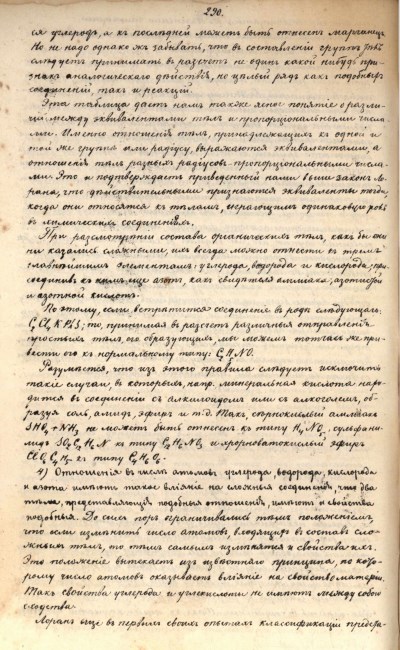 290.
ся углеродъ, а къ послѣдней можетъ быть отнесенъ марганецъ.
Но не надо однако жъ забывать, что въ составленіи группъ тѣлъ
слѣдуетъ принимать въ разсчетъ не одинъ какой нибудь при-
знакъ аналогическаго дѣйствія, но цѣлый рядъ какъ подобныхъ
соединеній, такъ и реакцій.
Эта таблица даетъ намъ также ясное понятіе о разли-
чіи между эквивалентами тѣлъ и пропорціональными числа-
ми. Именно отношенія тѣлъ, принадлежащихъ къ одной и
той же группѣ или радіусу, выражаются эквивалентами, а
отношенія тѣлъ разныхъ радіусовъ - пропорціональными числа-
ми. Это и подтверждаетъ приведенный нами выше законъ Ло-
рана, что дѣйствительными признаются эквиваленты тогда,
когда они относятся къ тѣламъ, играющимъ одинаковую роль
въ химическихъ соединеніяхъ.
При разсмотрѣніи состава органическихъ тѣлъ, какъ бы они
ни казались сложными, ихъ всегда можно отнести къ тремъ
главнѣйшимъ элементамъ: углерода, водорода и кислорода, при-
соединивъ къ нимъ еще азотъ, какъ свидѣтели амміака, азотистой
и азотной кислотъ.
Поэтому, если встрѣтится соединеніе въ родѣ слѣдующаго:
то, принимая въ разсчетъ различныя отправленія
простыхъ тѣлъ, его образующихъ, мы можемъ тотчасъ же при-
вести его къ нормальному типу:
Разумѣется, что изъ этого правила слѣдуетъ исключить
такіе случаи, въ которыхъ, напр. минеральная кислота нахо-
дится въ соединеніи съ алкалоидомъ или съ алкоголемъ, об-
разуя соль, амидъ, эфиръ и т.д. Такъ, сѣрнокислый амміакъ
не можетъ быть отнесенъ къ типу сульфани-
лидъ къ типу и хлорноватокислый эфиръ
къ типу
4) Отношенія въ числѣ атомовъ углерода, водорода, кислорода
и азота имѣютъ такое вліяніе на сложныя соединенія, что два
тѣла, представляющія подобныя отношенія, имѣютъ и свойства
подобныя. До сихъ поръ ограничивались тѣмъ положеніемъ,
что если измѣнить число атомовъ, входящихъ въ составъ сло-
жныхъ тѣлъ, то тѣмъ самымъ измѣнятся и свойства ихъ.
Это положеніе вытекаетъ изъ извѣстнаго принципа, по кото-
рому число атомовъ оказываетъ вліяніе на свойство матеріи.
Такъ свойства углерода и углекислоты не имѣютъ между собою
сходства.
Лоранъ еще въ первыхъ своихъ опытахъ классификаціи предста-